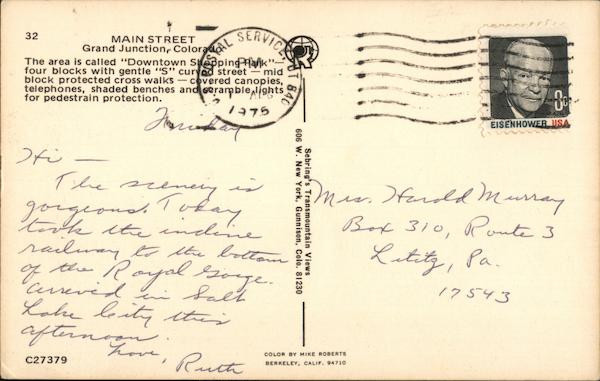 32
MAIN STREET
Grand Junction, Colorado
The area is called "Downtown Shopping Park"—
four blocks with gentle "S" curved street — mid
block protected cross walks — covered canopies,
telephones, shaded benches and scramble lights
for pedestrain protection.
U.S. POSTAL SERVICE UT 840
PM
1975
EISENHOWER USA
8c
Hi —
The scenery is
gorgeous. Today
took the incline
railway to the bottom
of the Royal Gorge.
Arrived in Salt
Lake City this
afternoon.
Love,
Ruth
Sebring's Transmountain Views
606 W. New York, Gunnison, Colo. 81230
Mrs. Harold Murray
Box 310, Route 3
Lititz, Pa.
17543
C27379
COLOR BY MIKE ROBERTS
BERKELEY, CALIF. 94710